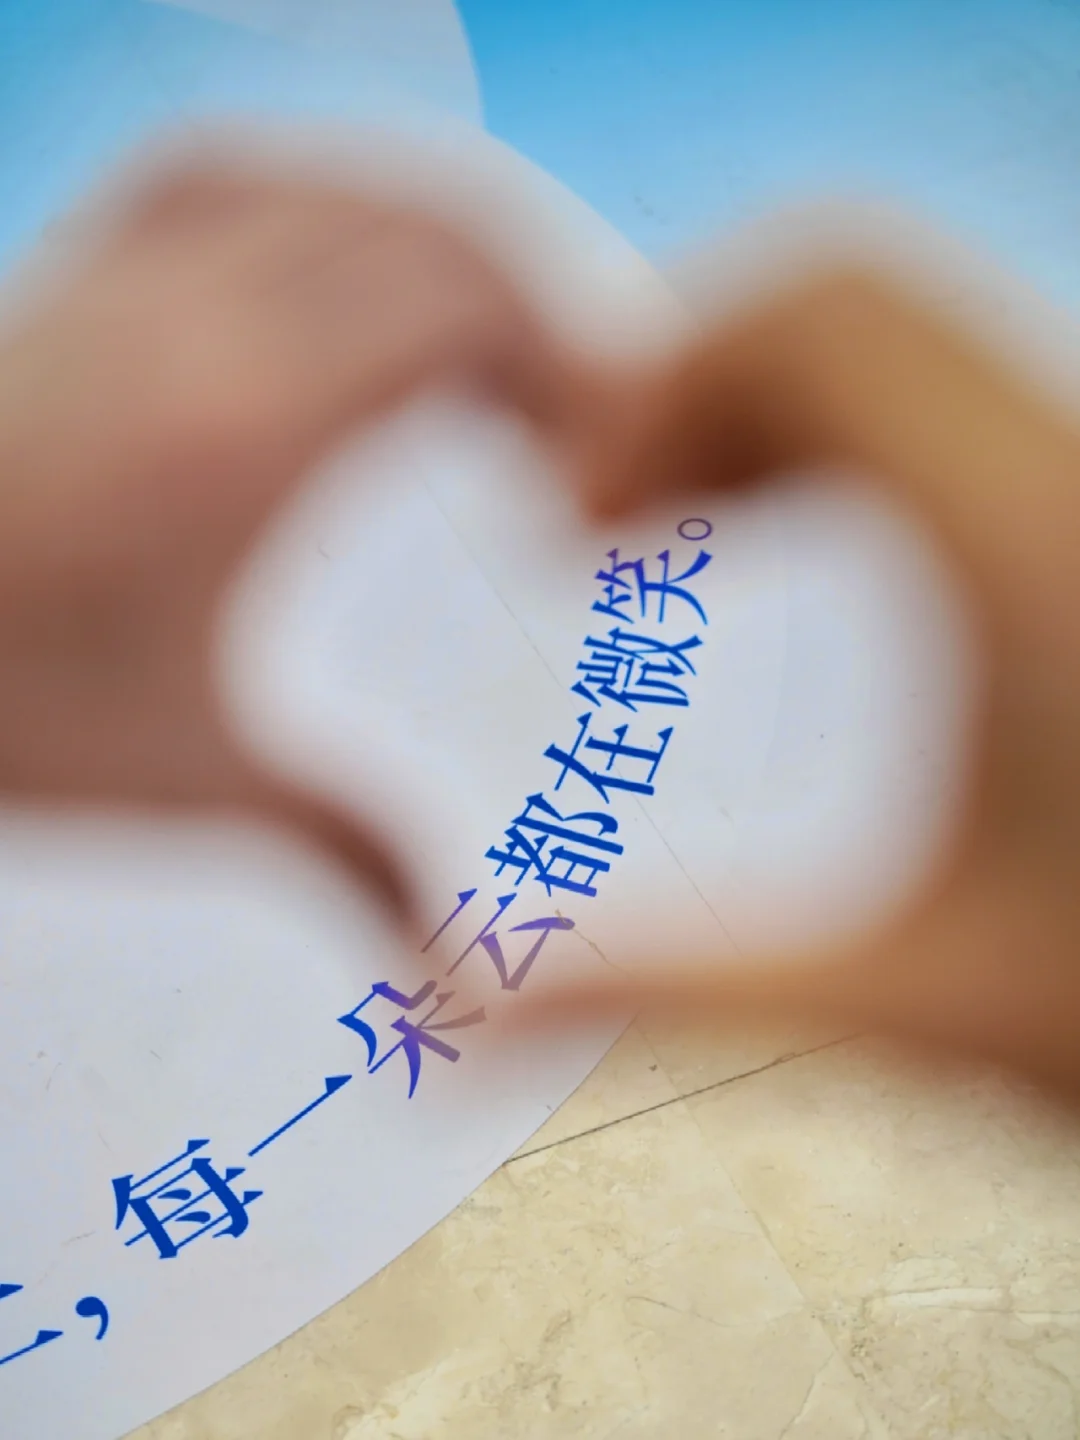 ，每一朵云都在微笑。